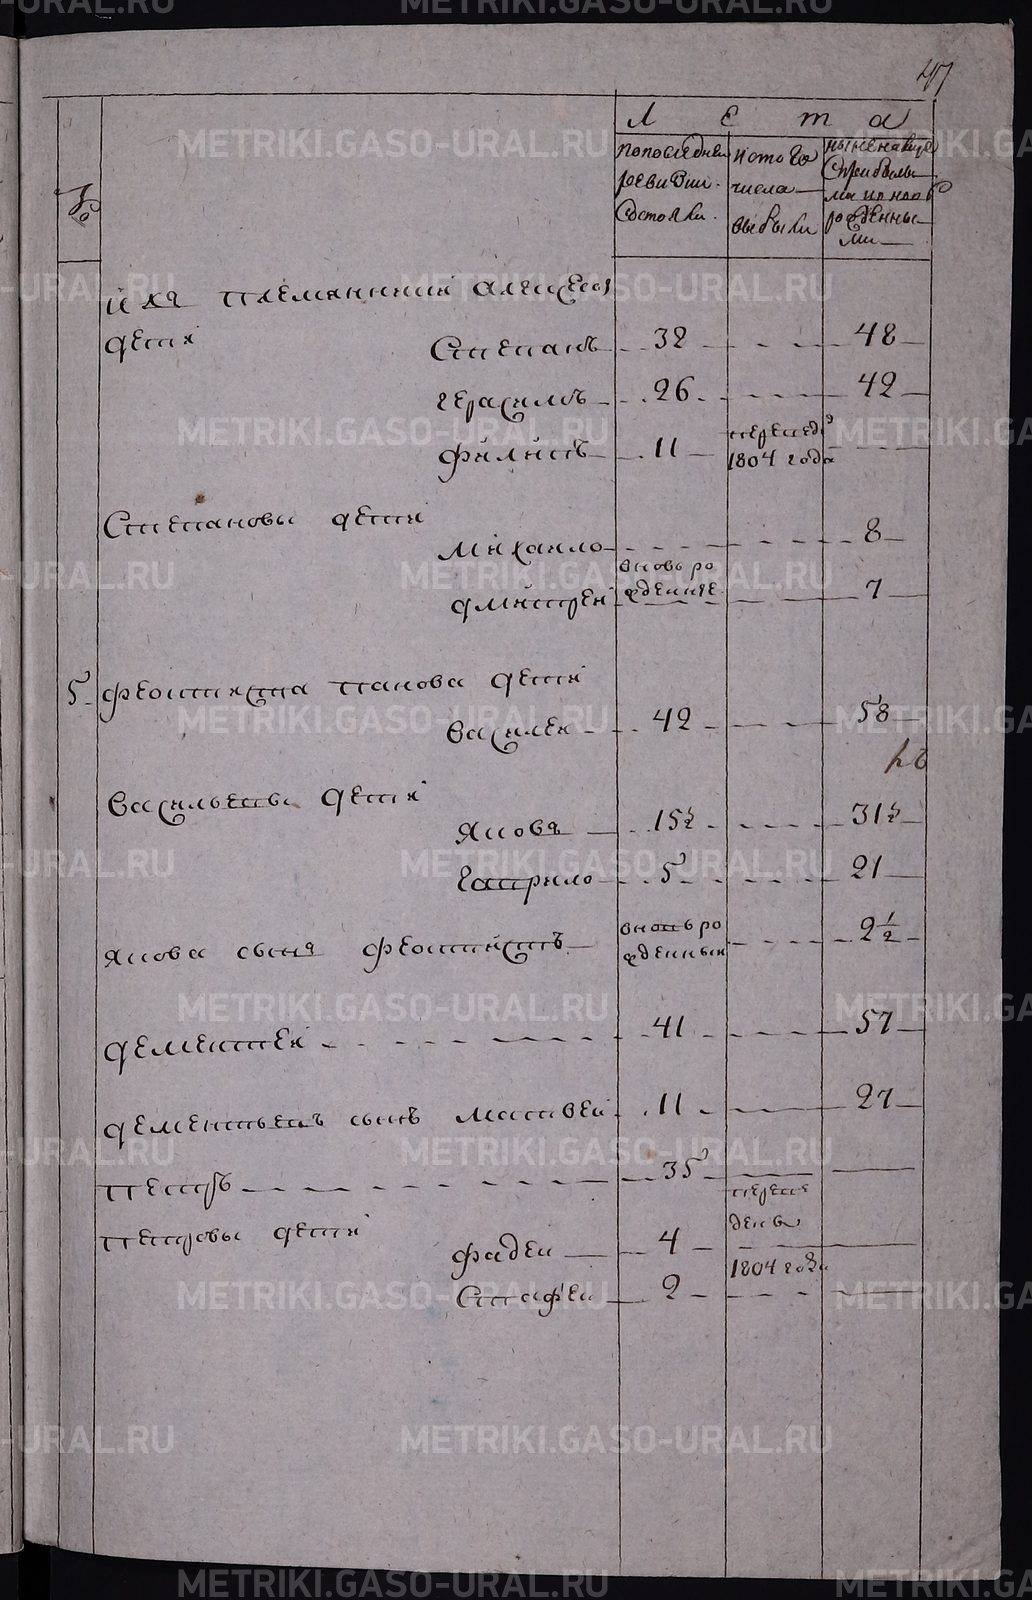 47
№
Лета
по последней ревизии состояли
ис того числа выбыли
ныне на лицо с прибылыми и новорожденными
ихъ племянники Алексеевы
дети
Степанъ 32 48
Герасимъ 26 42
Филипъ 11 переведенъ 1804 года
Степановы дети
Михаило 8
вновь рожденные
Дмитрей 7
5 Феоктиста Панова дети
Василей 42 58
Васильевы дети
Яковъ 15½ 31½
Гаврило 5 21
Якова сынъ Феоктистъ вновь рожденный 2½
Дементей 41 57
Дементьевъ сынъ Матвей 11 27
Петръ 35
переведены 1804 года
Петровы дети
Фадей 4
Стафей 2
METRIKI.GASO-URAL.RU